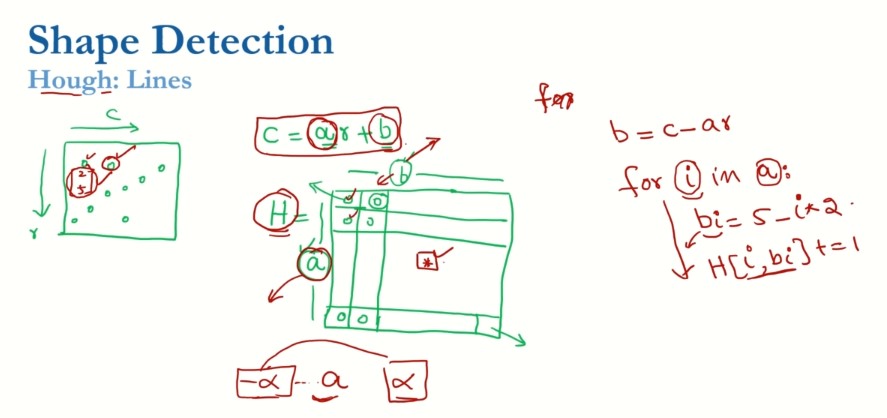 Shape Detection
Hough: Lines
C
r
2
5
C = ar + b
b
H =
a
0
0
0 0
*
-α ... a α
for
b = c - ar
for i in a:
bi = 5 - i * 2
H[i, bi] += 1